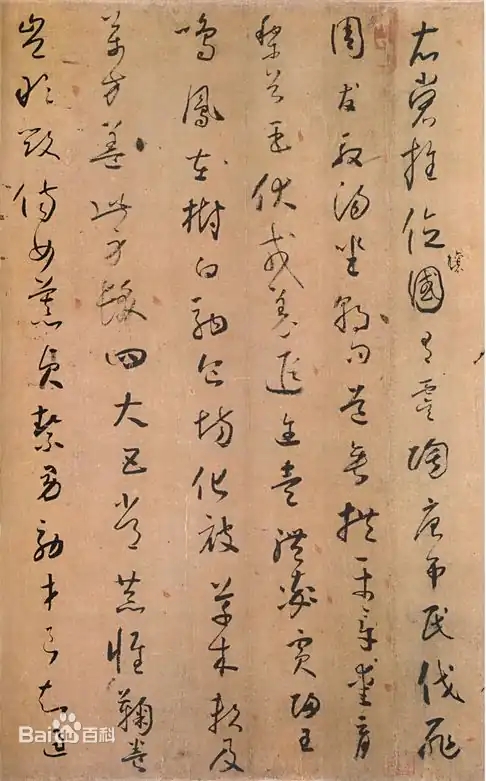 衣裳推位讓國有虞陶唐弔民伐罪
周發殷湯坐朝問道垂拱平章愛育
黎首臣伏戎羌遐邇壹體率賓歸王
鳴鳳在樹白駒食場化被草木賴及
萬方蓋此身髮四大五常恭惟鞠養
豈敢毀傷女慕貞絜男效才良知過
Bai百科